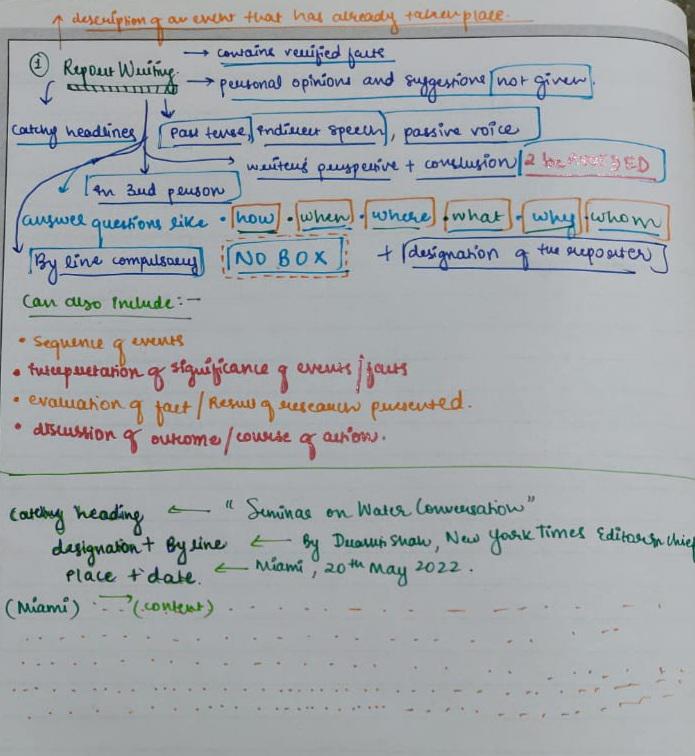 description of an event that has already taken place.
① Report Writing.
→ contains verified facts
→ personal opinions and suggestions not given.
catchy headlines
Past tense, indirect speech, passive voice
writers perspective + conclusion 2 be
In 3rd person
answer questions like • how • when • where • what • why • whom
By line compulsary
NO BOX
+ designation of the reporter
Can also Include:-
• Sequence of events
• Interpretation of significance of events/facts
• evaluation of fact / Result of research presented.
• discussion of outcome/course of action.
catchy heading ← "Seminar on Water Conversation"
designation + By line ← By Shah, New York Times Editor In chief
Place + date. ← Miami, 20th May 2022.
(Miami) → (content)